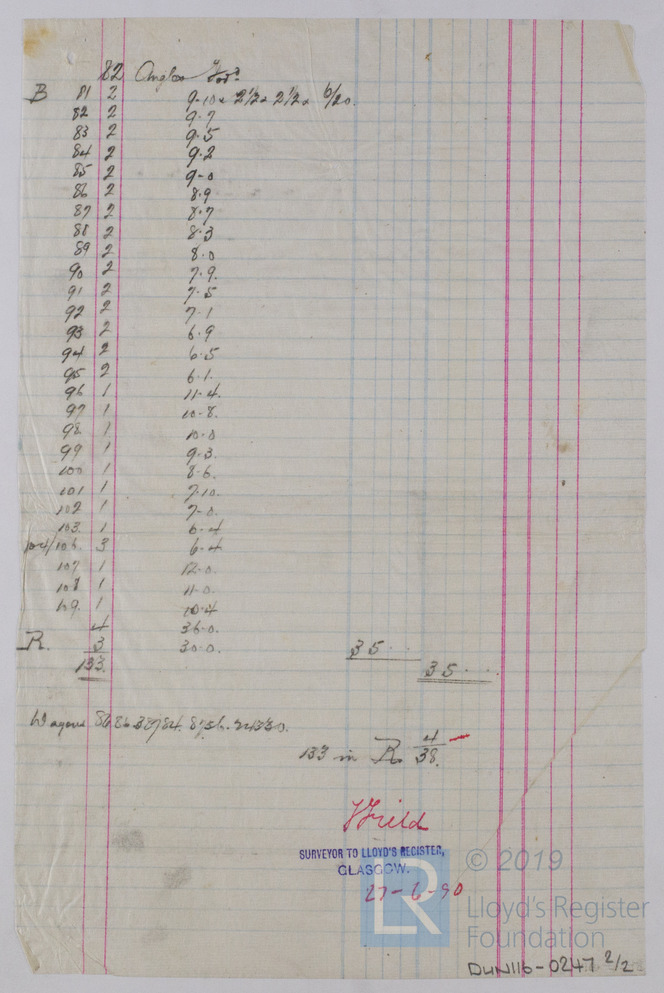 82 Angles Ford
B 81 2 9-10 x 2½ x 2½ x 6/20.
82 2 9.7
83 2 9.5
84 2 9.2
85 2 9-0
86 2 8.9
87 2 8.7
88 2 8.3
89 2 8.0
90 2 7.9.
91 2 7.5
92 2 7.1
93 2 6.9
94 2 6.5
95 2 6.1.
96 1 11.4.
97 1 10.8.
98 1 10.0
99 1 9.3.
100 1 8.6.
101 1 7.10.
102 1 7-0.
103. 1 6-4
104/106. 3 6-4
107 1 12.0.
108 1 11.0.
109. 1 10.4
4 36.0.
R. 3 30.0. 35...
133. 35....
Wagons
133 in R 4/38.
Field
SURVEYOR TO LLOYD'S REGISTER,
GLASGOW.
27-6-90
© 2019
LR
Lloyd's Register
Foundation
DUN116-0247 2/2